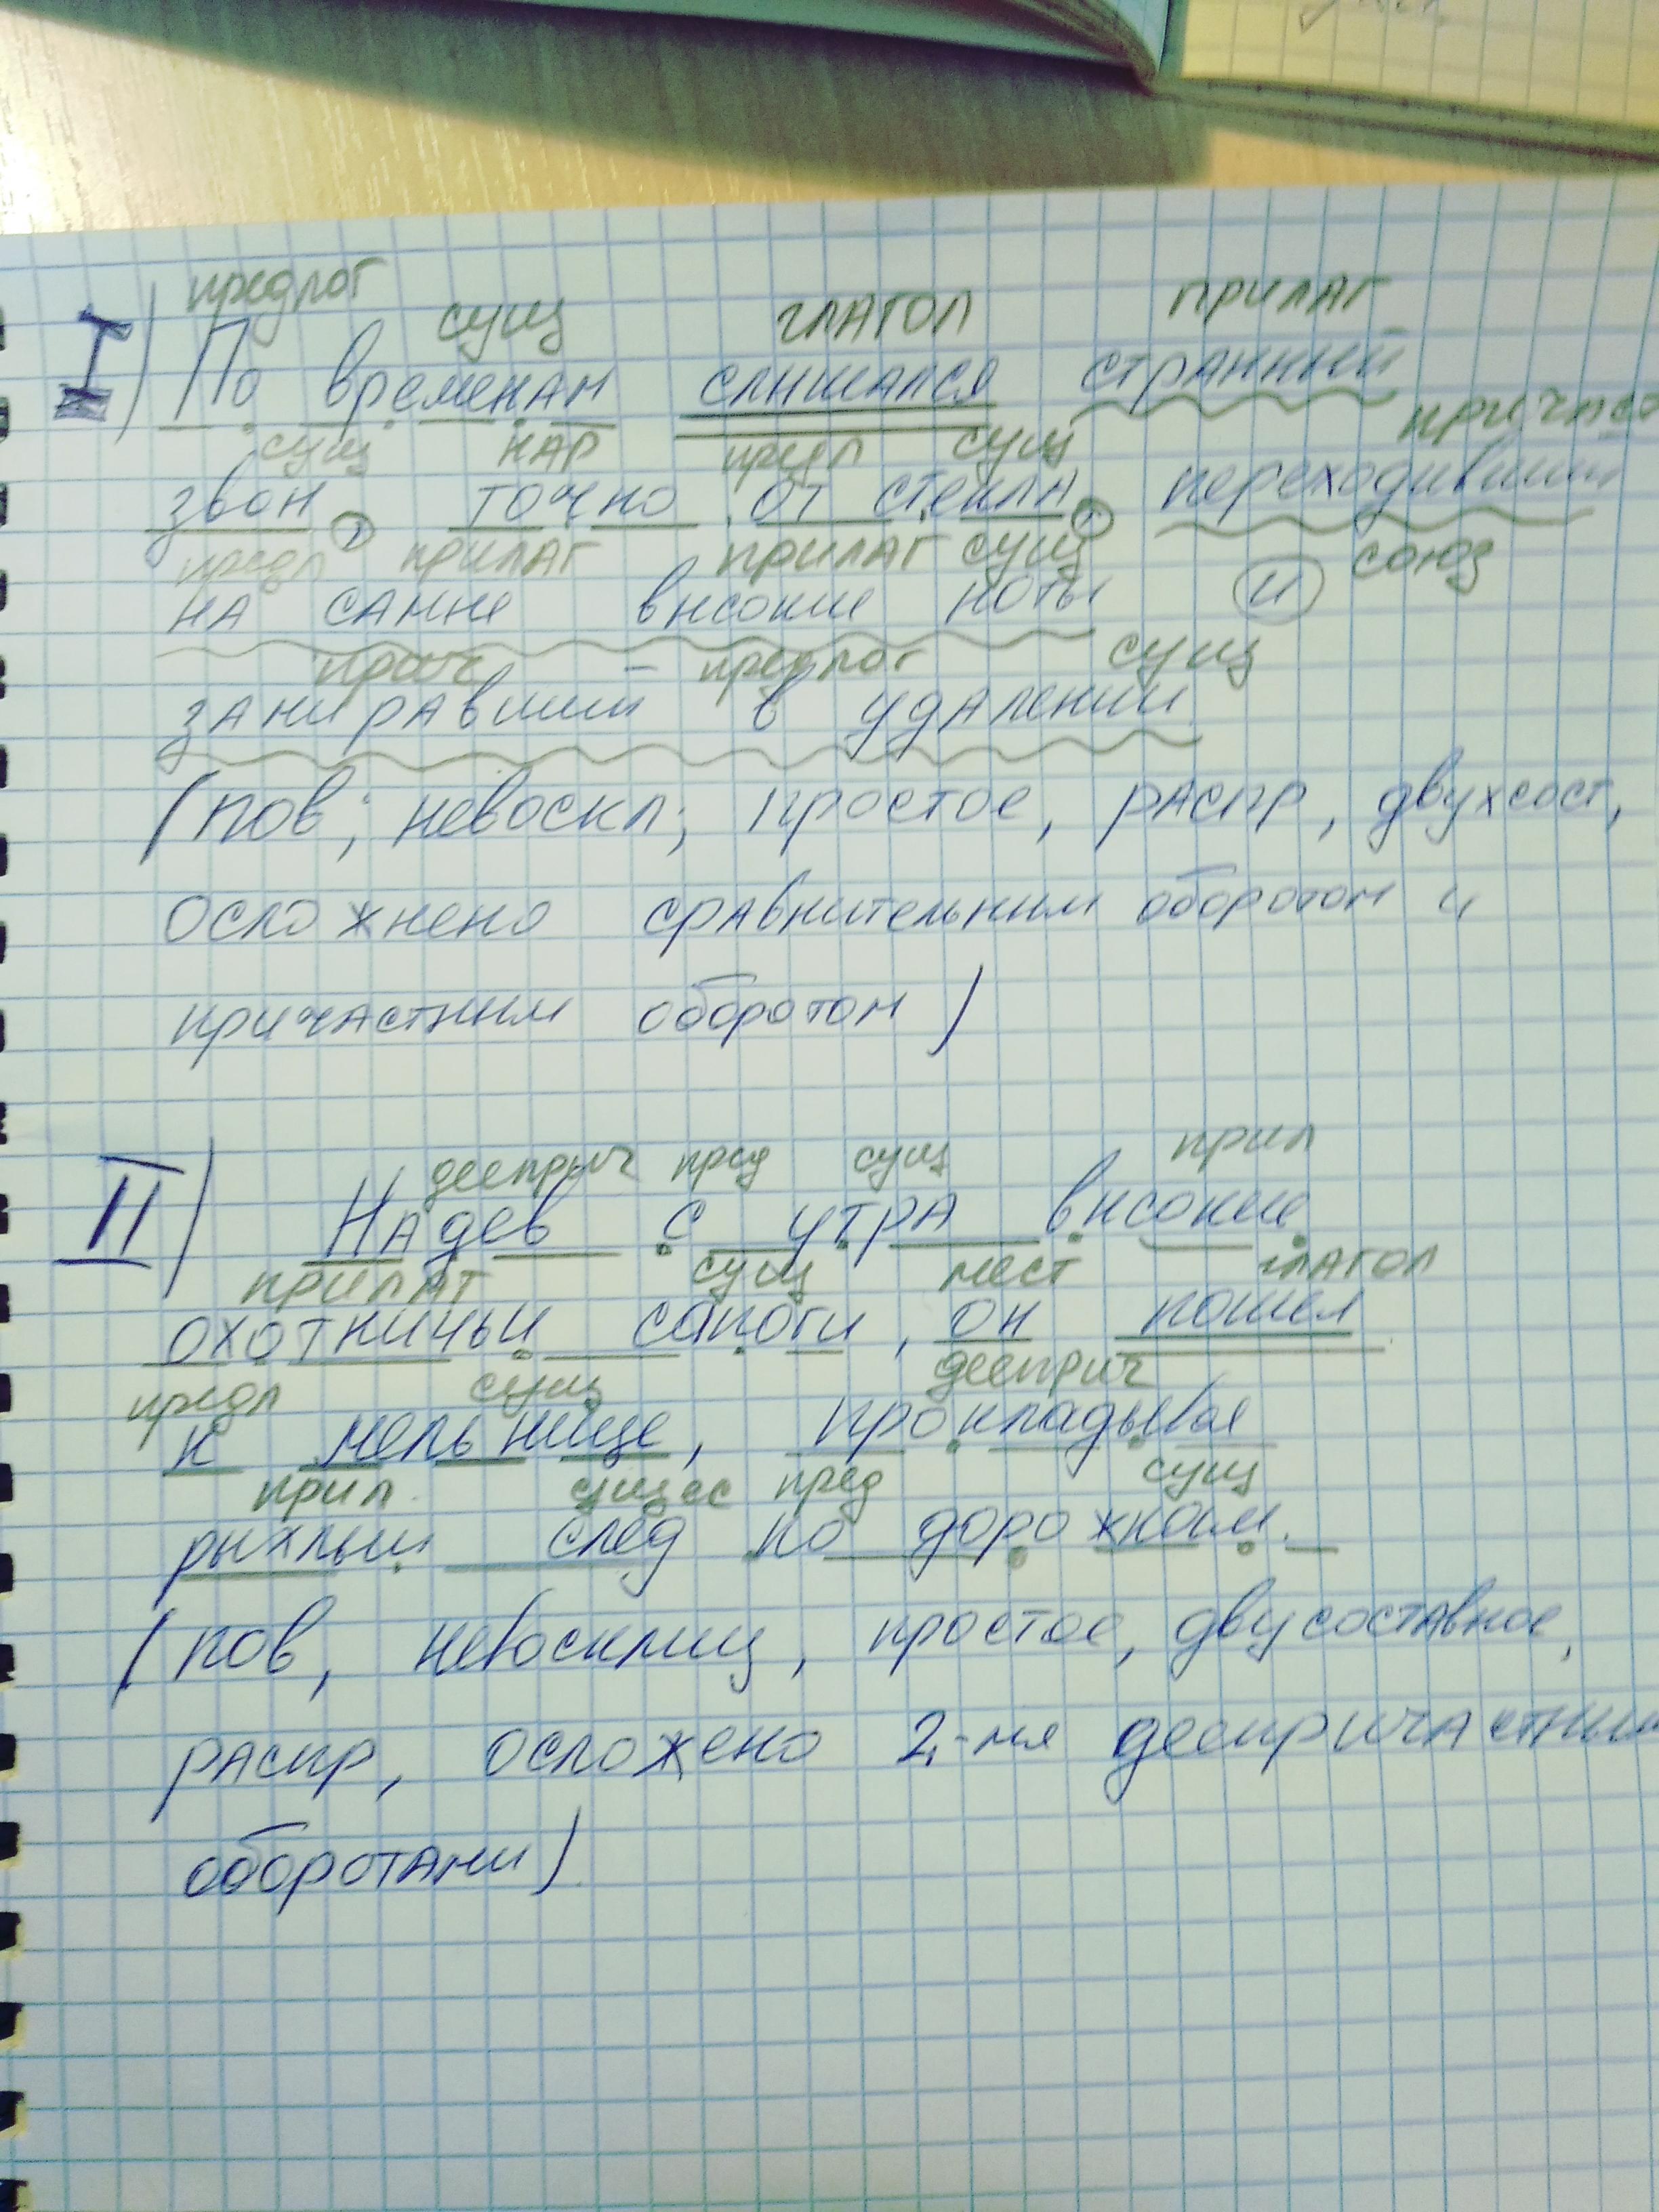 предлог сущ глагол прилаг
I) По временам слышался странный
сущ нар предл сущ причаст
звон, точно от стекла, переходивший
предл прилаг прилаг сущ союз
на самые высокие ноты и
прич предлог сущ
замиравший в удалении
(пов; невоскл; простое, распр, двухсост,
осложнено сравнительным оборотом и
причастным оборотом)
дееприч пред сущ прил
II) Надев с утра высокие
прилаг сущ мест глагол
охотничьи сапоги, он пошел
предл сущ дееприч
к мельнице, прокладывая
прил. сущес пред сущ
рыхлый след по дорожкам.
(пов, невосклиц, простое, двусоставное,
распр, осложено 2-мя деепричастным
оборотами)